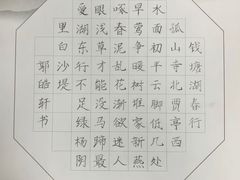 钱塘湖春行
孤山寺北贾亭西
水面初平云脚低几处
早莺争暖树谁家新燕
啄春泥乱花渐欲迷人
眼浅草才能没马蹄最
爱湖东行不足绿杨阴
里白沙堤
郭皓轩书